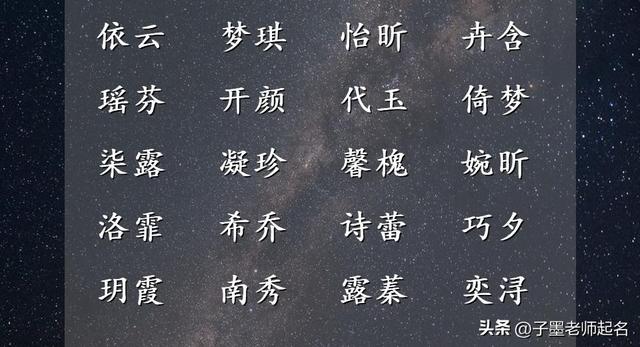 依云 梦琪 怡昕 卉含
瑶芬 开颜 代玉 倚梦
柒露 凝珍 馨槐 婉昕
洛霏 希乔 诗蕾 巧夕
玥霞 南秀 露蓁 奕浔
头条 @子墨老师起名